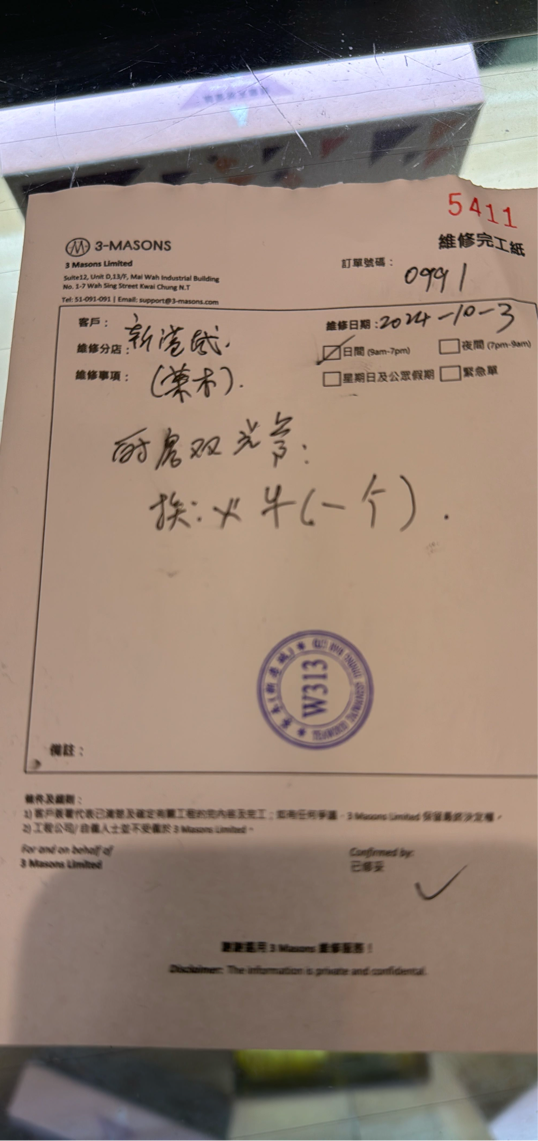 5411
維修完工紙
3-MASONS
3 Masons Limited
Suite12, Unit D,13/F, Mai Wah Industrial Building
No. 1-7 Wah Sing Street Kwai Chung N.T
Tel: 51-091-091 | Email: support@3-masons.com
訂單號碼： 0991
客戶：
維修分店： 新港城
維修事項： (葉木).
維修日期 : 2024-10-3
日間 (9am-7pm) 夜間 (7pm-9am)
星期日及公眾假期 緊急單
双光管:
换: 火牛(一个).
W313
備註：
條件及細則：
1) 客戶簽署代表已清楚及確定有關工程的完內容及完工；如有任何爭議，3 Masons Limited 保留最終決定權。
For and on behalf of
3 Masons Limited
Confirmed by:
已維妥
謝謝選用 3 Masons 維修服務！
Disclaimer: The information is private and confidental.